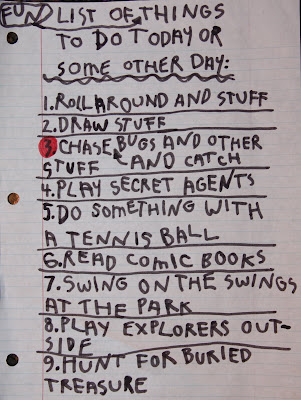 FUN LIST OF THINGS
TO DO TODAY OR
SOME OTHER DAY:
1. ROLL AROUND AND STUFF
2. DRAW STUFF
3. CHASE BUGS AND OTHER
STUFF AND CATCH
4. PLAY SECRET AGENTS
5. DO SOMETHING WITH
A TENNIS BALL
6. READ COMIC BOOKS
7. SWING ON THE SWINGS
AT THE PARK
8. PLAY EXPLORERS OUT-
SIDE
9. HUNT FOR BURIED
TREASURE